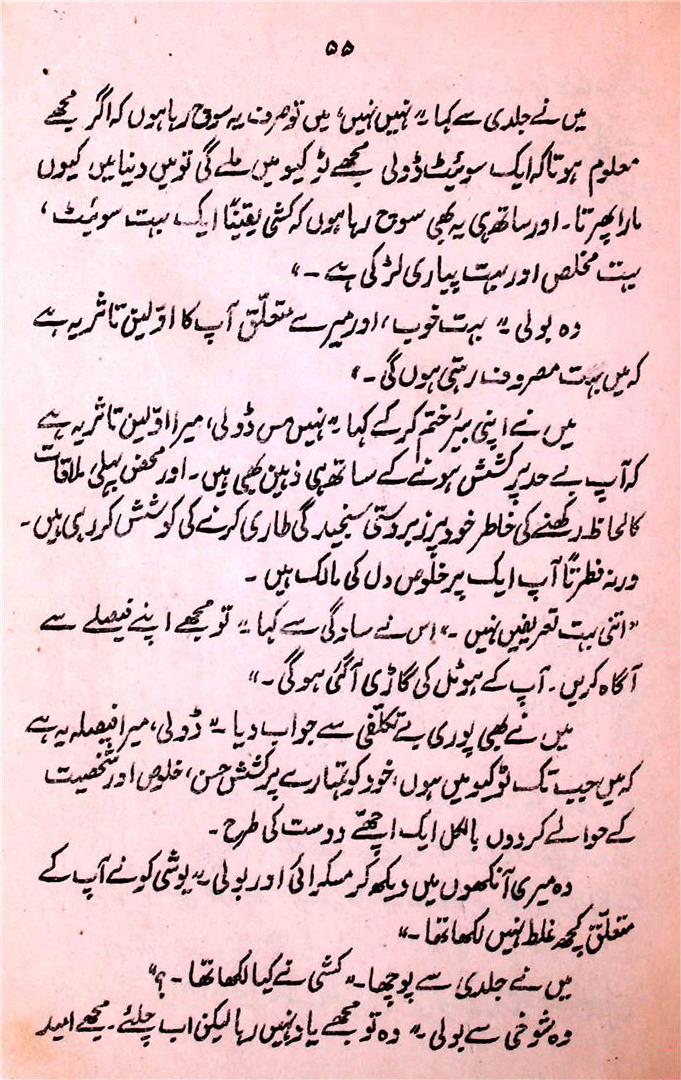 ۵۵
میں نے جلدی سے کہا۔" نہیں نہیں، میں تو صرف یہ سوچ رہا ہوں کہ اگر مجھے
معلوم ہوتا کہ ایک سوئیٹ ڈولی مجھے ٹوکیو میں ملے گی تو میں دنیا میں کیوں
مارا پھرتا۔ اور ساتھ ہی یہ بھی سوچ رہا ہوں کہ کشی یقیناً ایک بہت سوئیٹ،
بہت مخلص اور بہت پیاری لڑکی ہے۔"
وہ بولی۔" بہت خوب، اور میرے متعلّق آپ کا اوّلین تاثر یہ ہے
کہ میں بہت مصروف رہتی ہوں گی۔"
میں نے اپنی بیئر ختم کر کے کہا۔" نہیں مس ڈولی، میرا اوّلین تاثر یہ ہے
کہ آپ بے حد پرکشش ہونے کے ساتھ ہی ذہین بھی ہیں۔ اور محض پہلی ملاقات
کا لحاظ رکھنے کی خاطر خود پر زبردستی سنجیدگی طاری کرنے کی کوشش کر رہی ہیں۔
ورنہ فطرتاً آپ ایک پرخلوص دل کی مالک ہیں۔
"اتنی بہت تعریفیں نہیں۔" اس نے سادگی سے کہا۔" تو مجھے اپنے فیصلے سے
آگاہ کریں۔ آپ کے ہوٹل کی گاڑی آ گئی ہو گی۔"
میں نے بھی پوری بے تکلفی سے جواب دیا۔" ڈولی، میرا فیصلہ یہ ہے
کہ میں جب تک ٹوکیو میں ہوں، خود کو تمہارے پرکشش حسن، خلوص اور شخصیت
کے حوالے کر دوں بالکل ایک اچھے دوست کی طرح۔
وہ میری آنکھوں میں دیکھ کر مسکرائی اور بولی۔" یوشی کو نے آپ کے
متعلّق کچھ غلط نہیں لکھا تھا۔"
میں نے جلدی سے پوچھا۔" کشی نے کیا لکھا تھا۔؟"
وہ شوخی سے بولی۔" وہ تو مجھے یاد نہیں رہا لیکن اب چلئے۔ مجھے امید